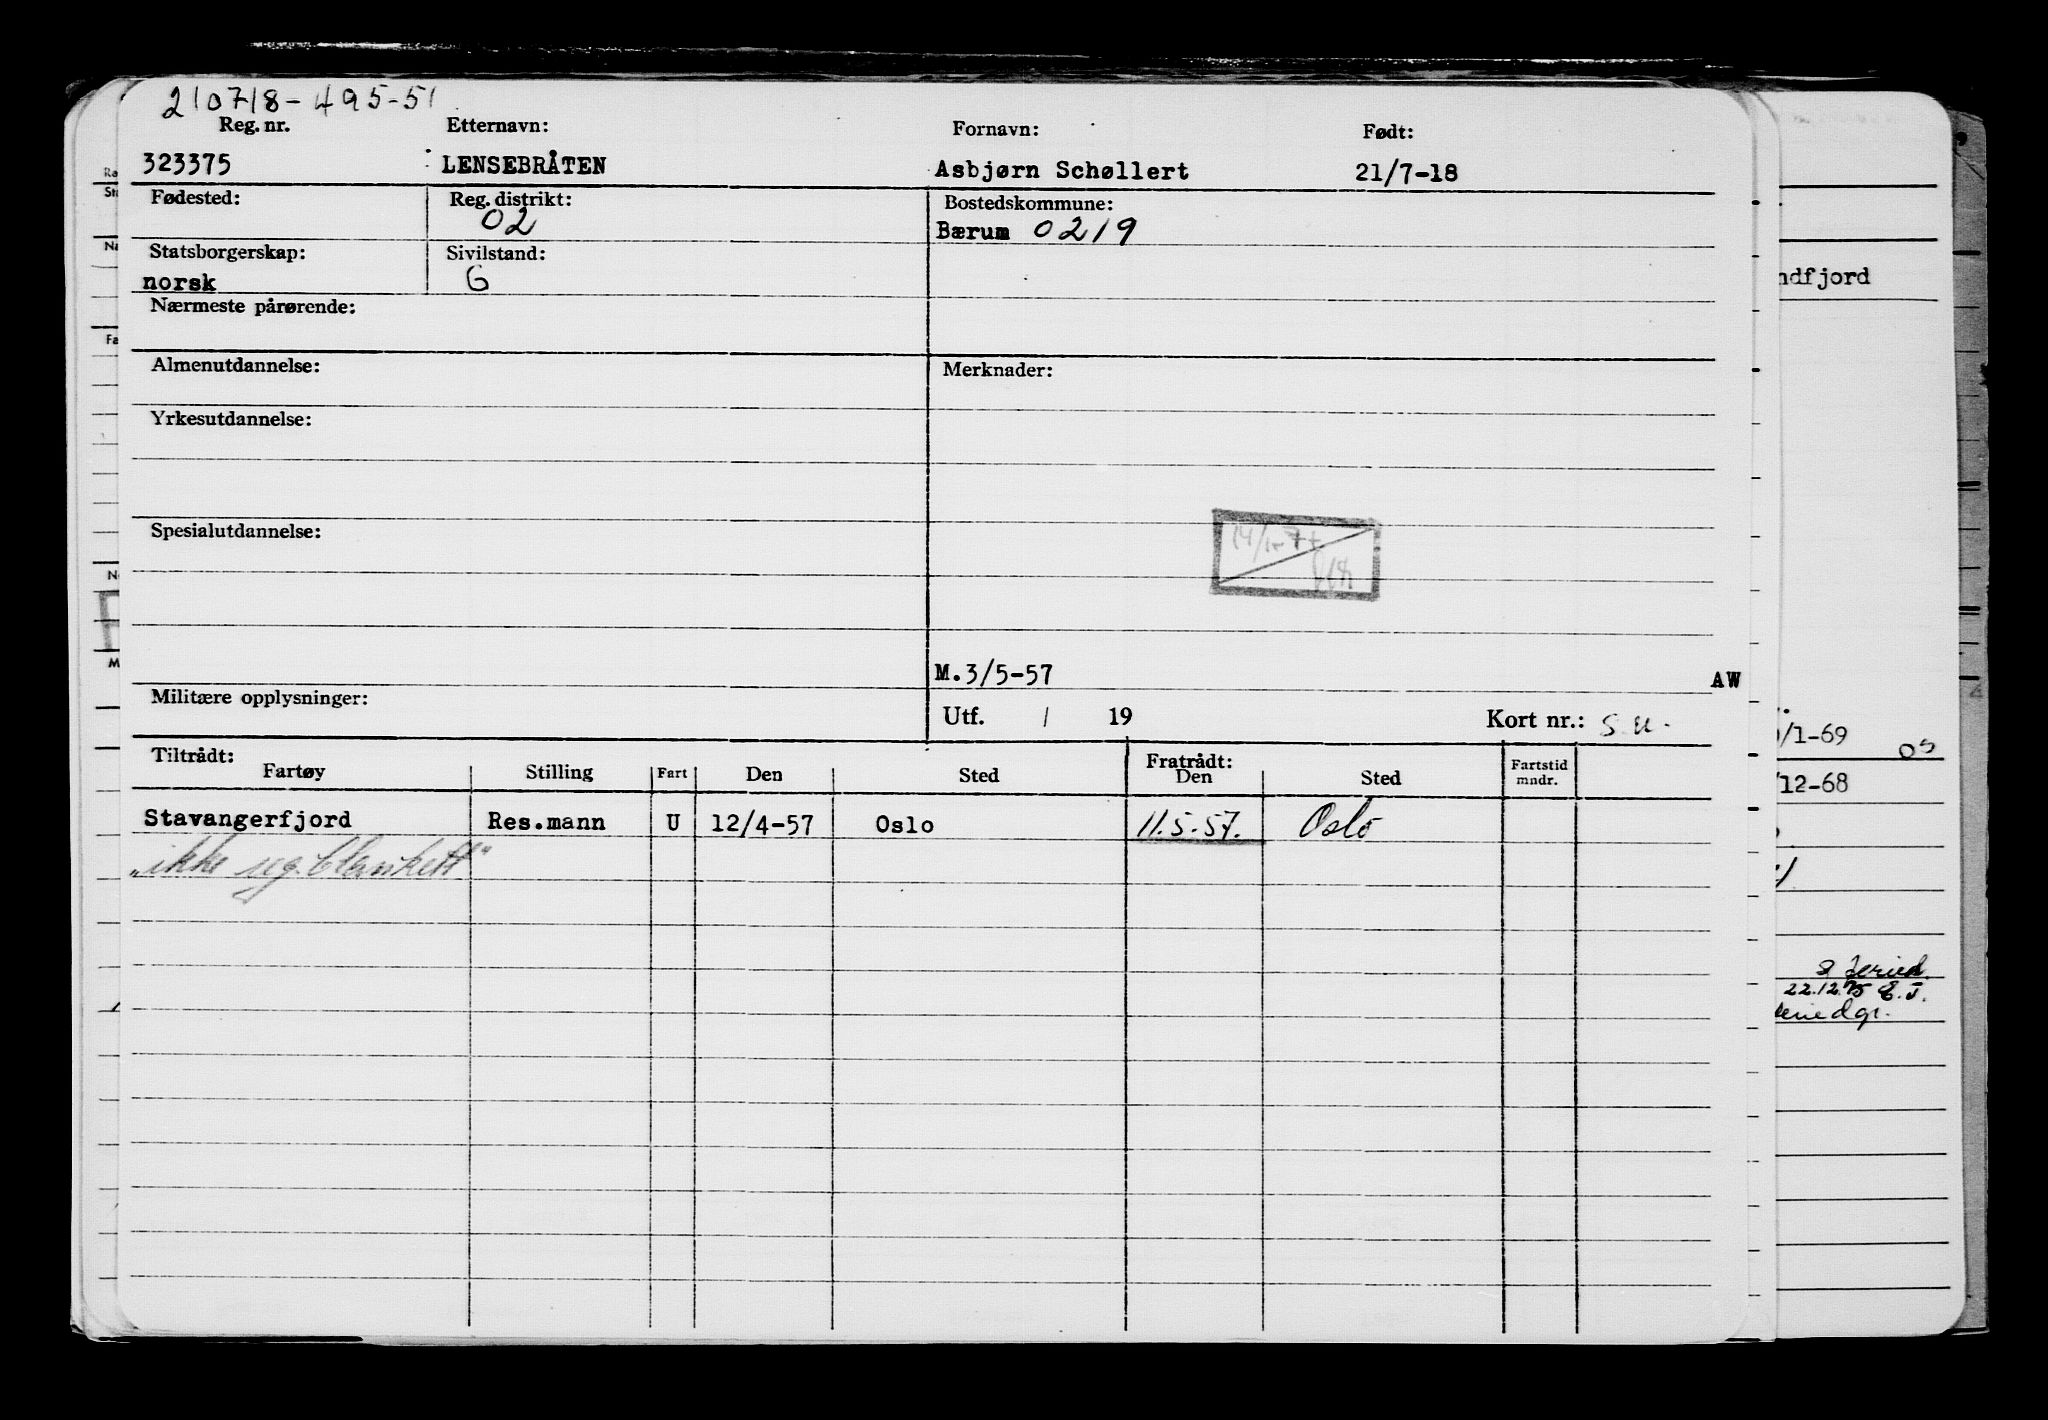 210718-495-51
Reg. nr. Etternavn: Fornavn: Født:
323375 LENSEBRÅTEN Asbjørn Schøllert 21/7-18
Fødested: Reg. distrikt: Bostedskommune:
02 Bærum 0219
Statsborgerskap: Sivilstand:
norsk G
Nærmeste pårørende:
Almenutdannelse: Merknader:
Yrkesutdannelse:
Spesialutdannelse:
M.3/5-57 AW
Militære opplysninger:
Utf. / 19 Kort nr.: S.U.
Tiltrådt: Fratrådt:
Fartøy Stilling Fart Den Sted Den Sted Fartstid mndr.
Stavangerfjord Res.mann U 12/4-57 Oslo 11.5.57. Oslo
"ikke seg. blankett"
ndfjord
/1-69
05
/12-68
22.12.75 E.I.